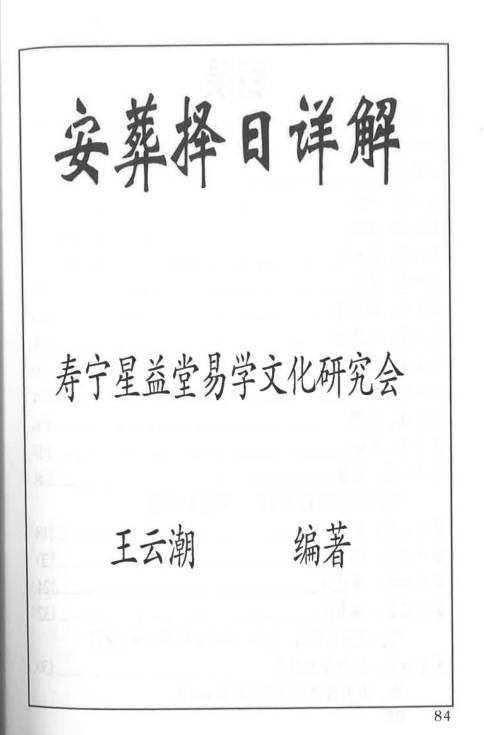 安葬择日详解
寿宁星益堂易学文化研究会
王云潮 编著
84